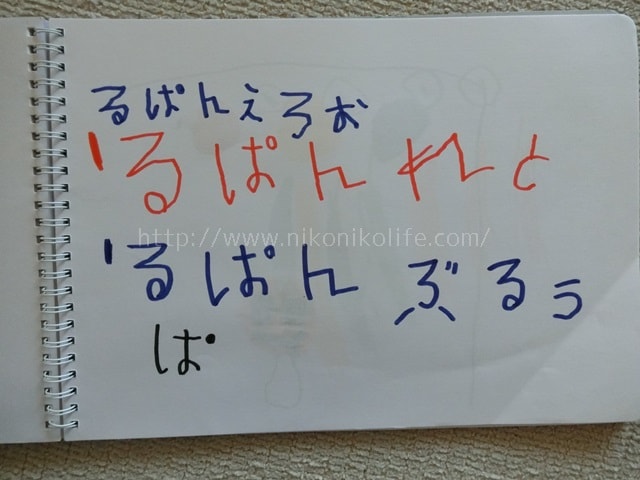 るぱんえろお
るぱんれと
http://www.nikonikolife.com/
るぱんぶるう
ぱ